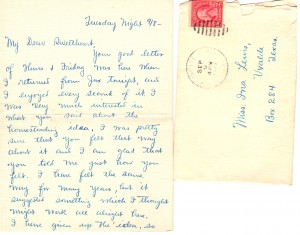 Tuesday Night 9/8-
My Dear Sweetheart,
Your good letter
of Thurs & Friday was here when
I returned from Jas tonight, and
I enjoyed every second of it. I
was very much interested in
what you said about the
homesteading idea. I was pretty
sure that you felt that way
about it and I am glad that
you told me just how you
felt. I have felt the same
way for many years, but it
suggested something which I thought
might work out alright here.
I have given up the idea, so
SEP
Miss. Ina Lewis,
Uvalde
Texas.
Box 284